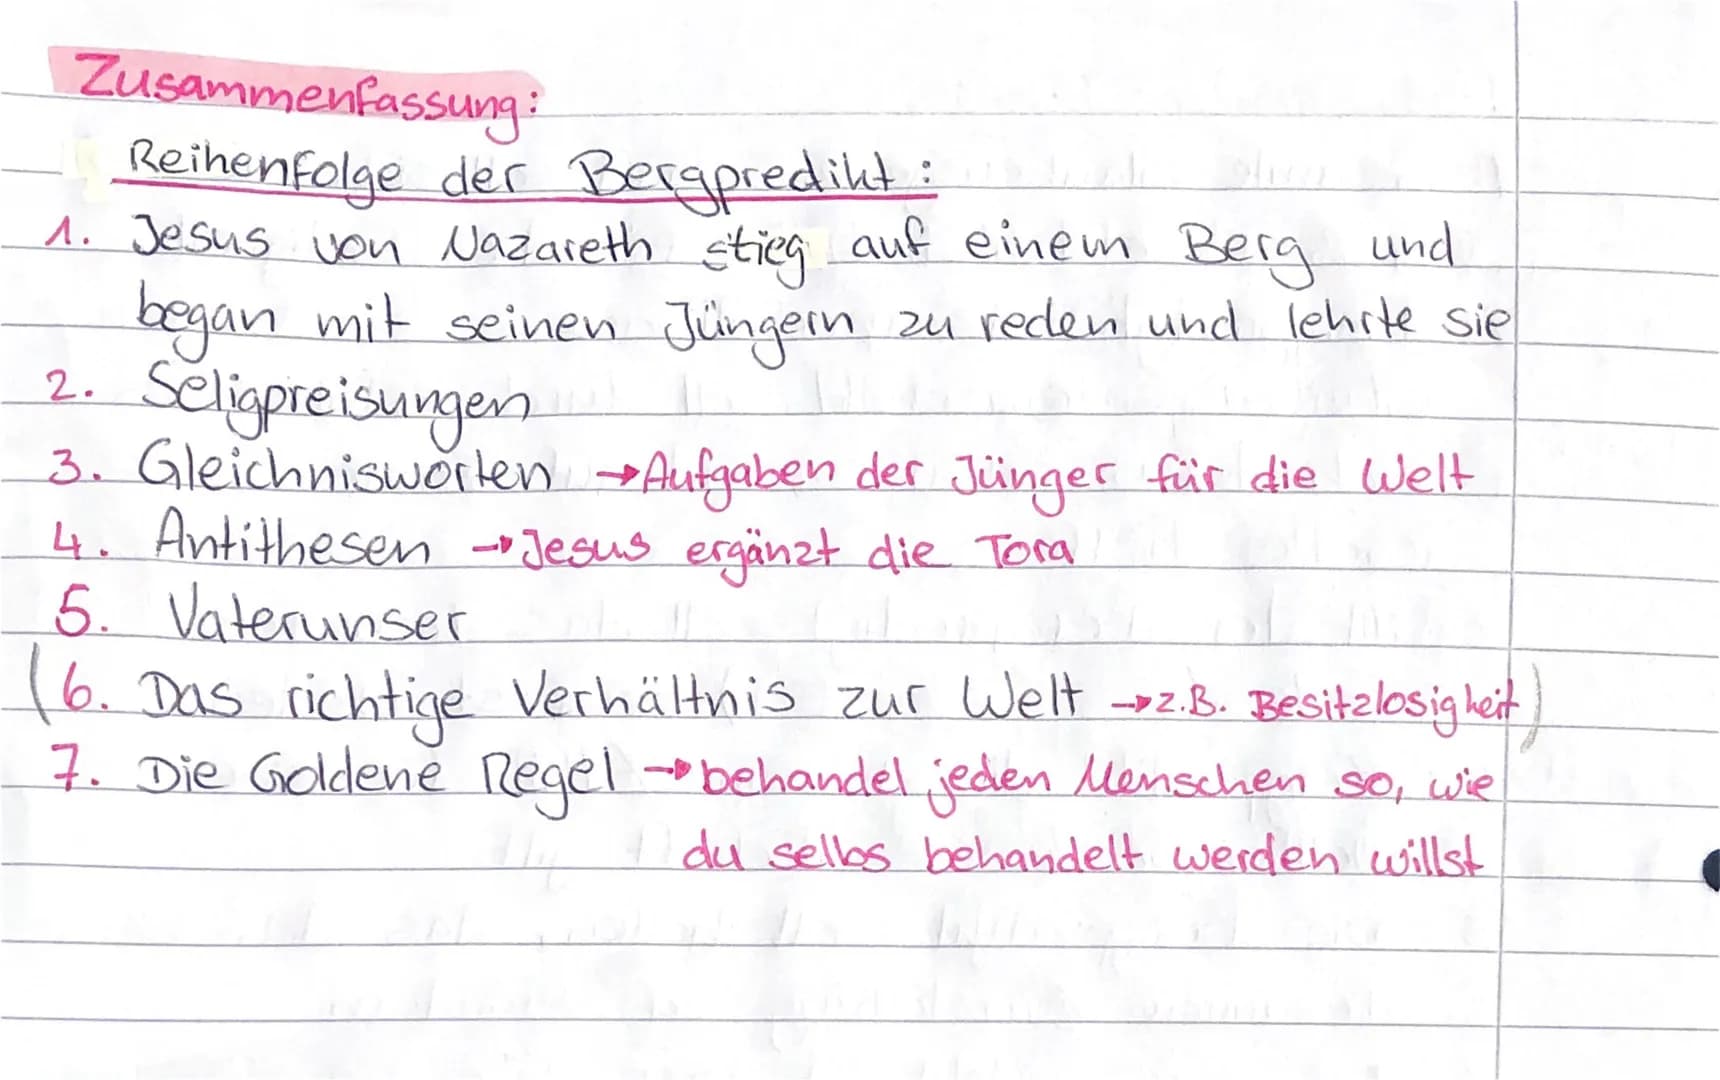 Zusammenfassung:
Reihenfolge der Bergpredikt:
1. Jesus von Nazareth stieg auf einem Berg und
began mit seinen Jüngern zu reden und lehrte sie
2. Seligpreisungen
3. Gleichnisworten → Aufgaben der Jünger für die Welt
4. Antithesen → Jesus ergänzt die Tora
5. Vaterunser
(6. Das richtige Verhältnis zur Welt → z.B. Besitzlosigkeit)
7. Die Goldene Regel → behandel jeden Menschen so, wie
du selbs behandelt werden willst